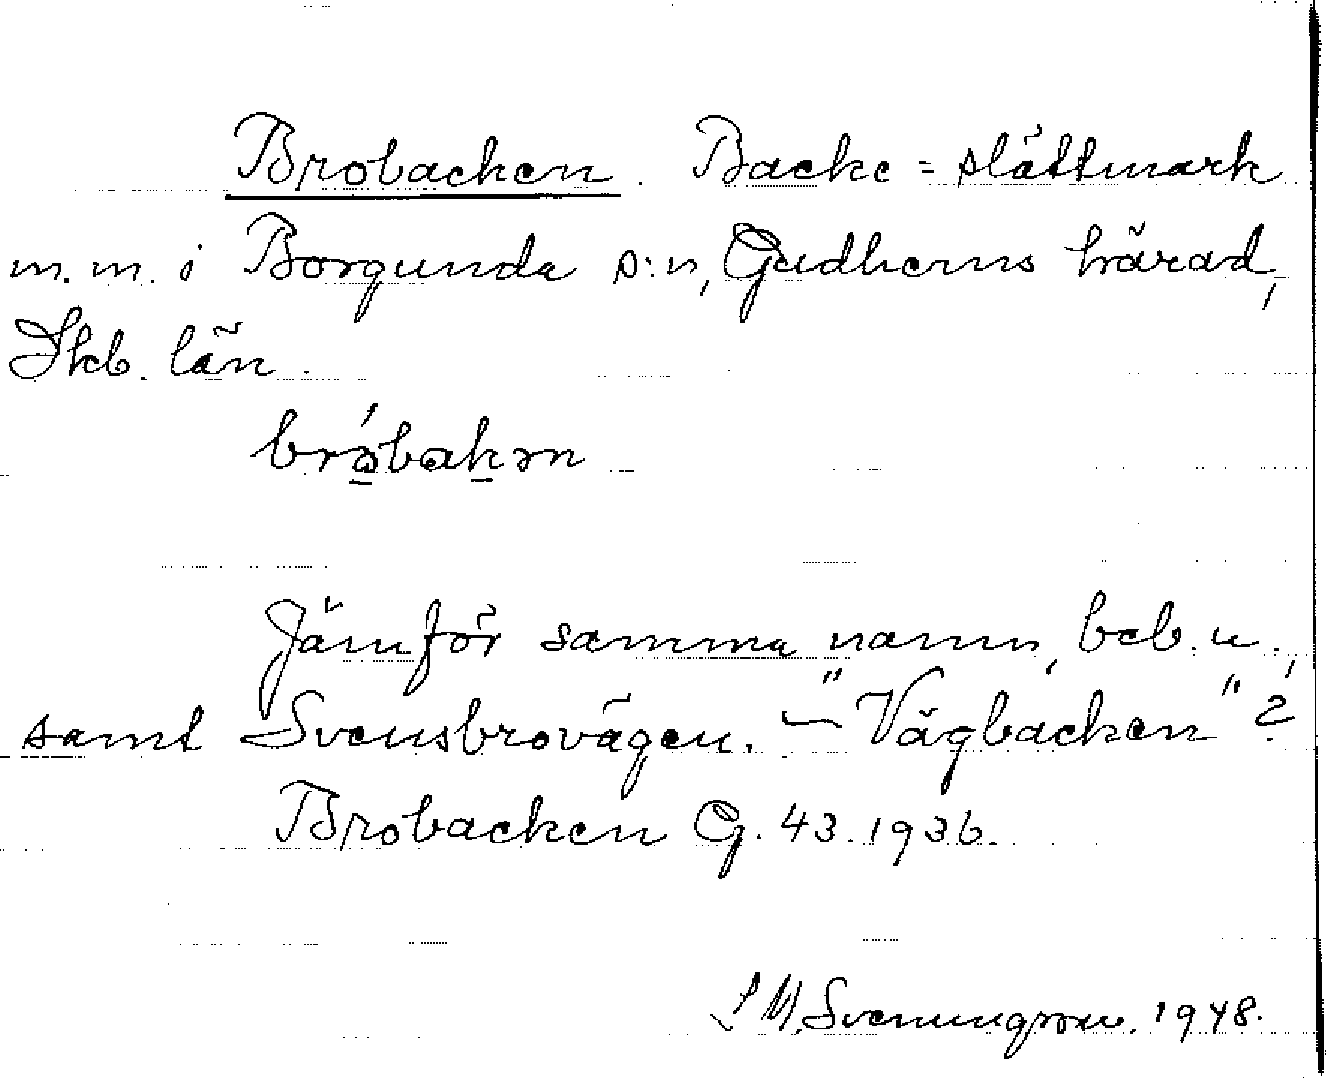 Brobacken. Backe = slättmark
m. m. i Borgunda s:n, Gudhems härad,
Skb. län.
bróbakən
Jämför samma namn, beb. n.,
samt Svensbrovägen. – "Vägbacken"?
Brobacken G. 43. 1936.
Svenungsson. 1948.